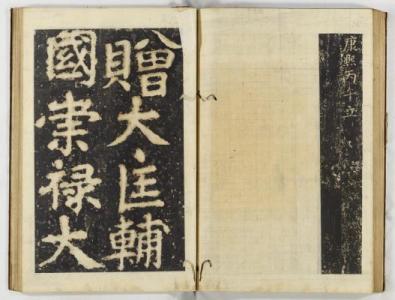 康熙丙午立
贈大匡輔
國崇祿大